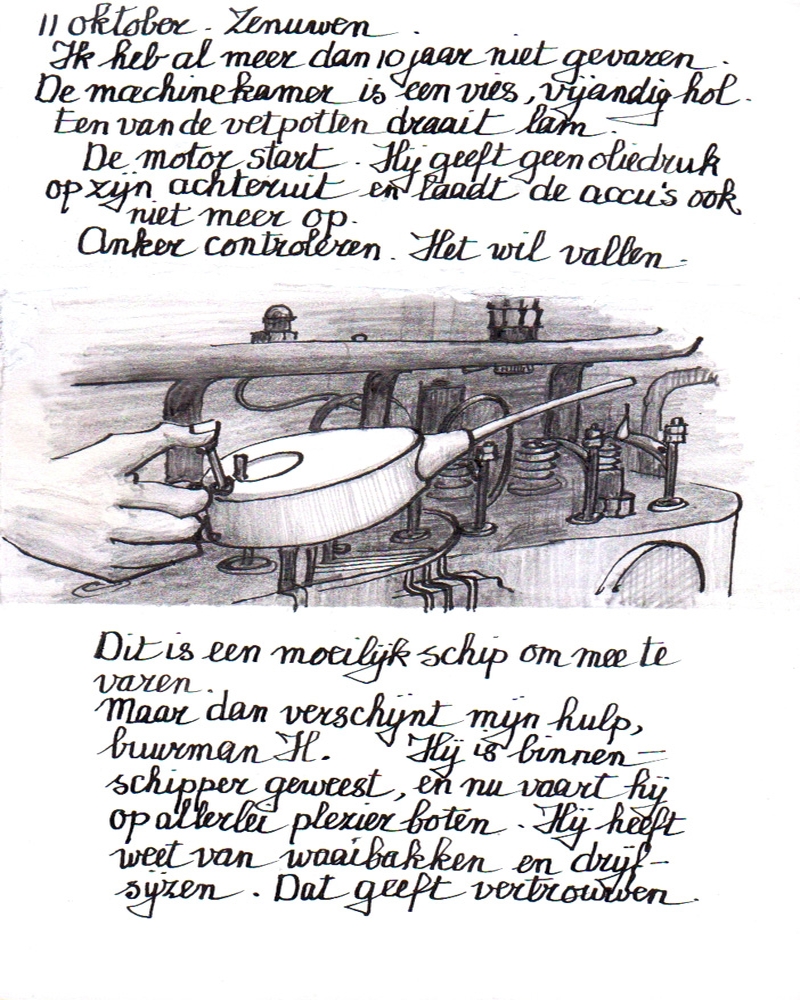 11 oktober. Zenuwen.
Ik heb al meer dan 10 jaar niet gevaren.
De machinekamer is een vies, vijandig hol.
Een van de vetpotten draait lam.
De motor start. Hij geeft geen oliedruk
op zijn achteruit en laadt de accu's ook
niet meer op.
Anker controleren. Het wil vallen.
Dit is een moeilijk schip om mee te
varen.
Maar dan verschijnt mijn hulp,
buurman H. Hij is binnen-
schipper geweest, en nu vaart hij
op allerlei plezier boten. Hij heeft
weet van waaibakken en drijf-
sijzen. Dat geeft vertrouwen.